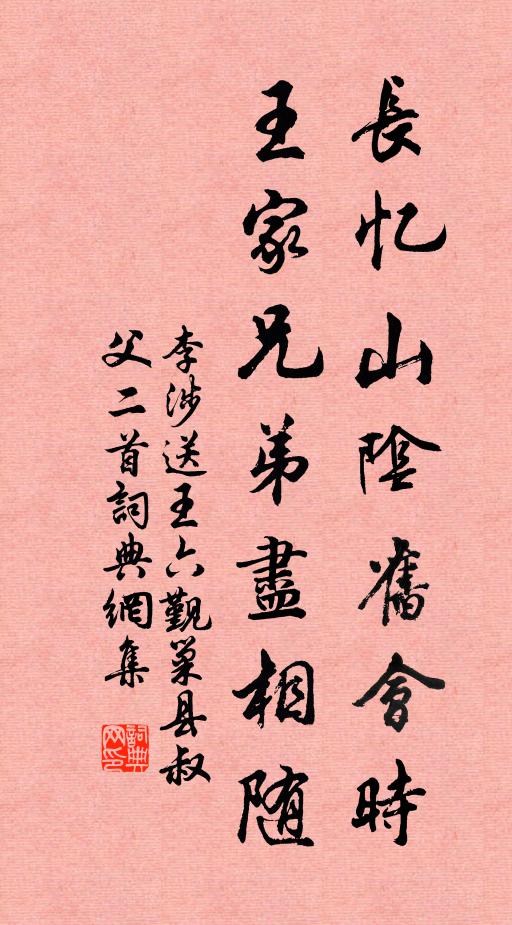 長忆山陰舊會時
王家兄弟盡相随
李涉送王六覲巢县叔
父二首詞典網集
詞典网印